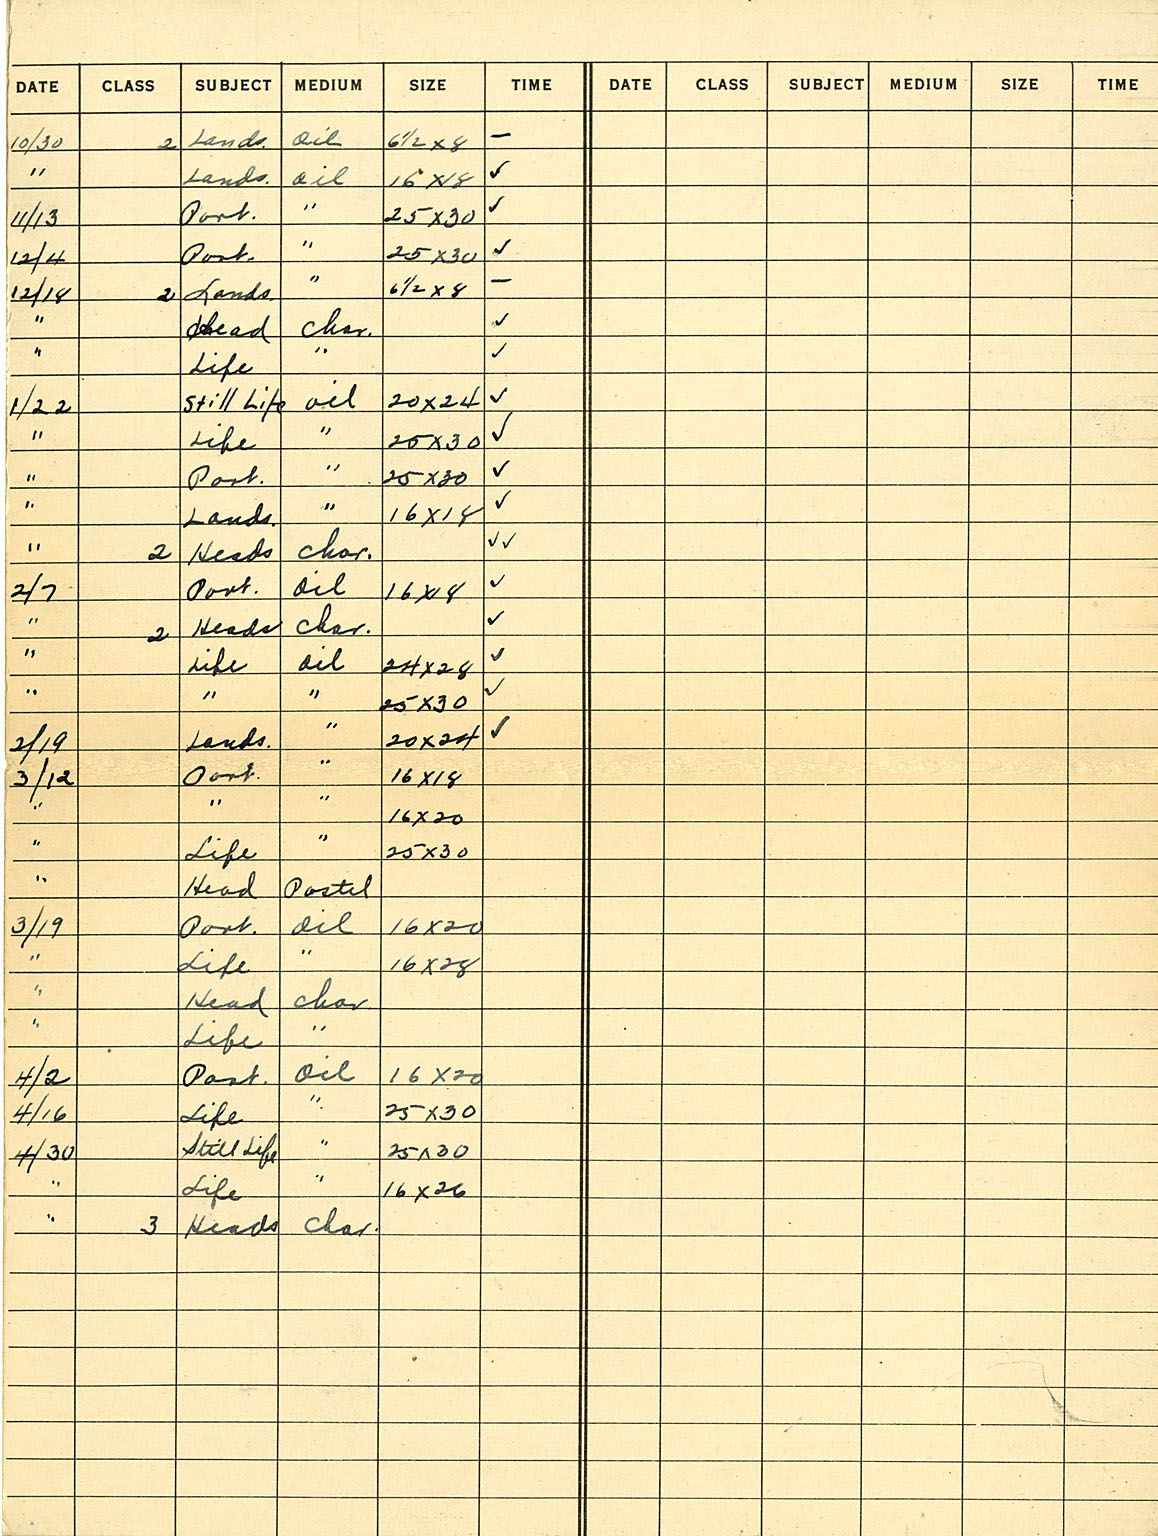 DATE CLASS SUBJECT MEDIUM SIZE TIME DATE CLASS SUBJECT MEDIUM SIZE TIME
10/30 2 Lands. Oil 6½ x 8 —
" Lands. oil 16 x 18 ✓
11/13 Port. " 25 x 30 ✓
12/4 Port. " 25 x 30 ✓
12/18 2 Lands. " 6½ x 8 —
" Head Char. ✓
" Life " ✓
1/22 Still Life oil 20 x 24 ✓
" Life " 25 x 30 ✓
" Port. " 25 x 30 ✓
" Lands. " 16 x 18 ✓
" 2 Heads Char. ✓✓
2/7 Port. Oil 16 x 18 ✓
" 2 Heads Char. ✓
" Life Oil 24 x 28 ✓
" " " 25 x 30 ✓
2/19 Lands. " 20 x 24 ✓
3/12 Port. " 16 x 18
" " " 16 x 20
" Life " 25 x 30
" Head Pastel
3/19 Port. Oil 16 x 20
" Life " 16 x 28
" Head Char
" Life "
4/2 Port. Oil 16 x 20
4/16 Life " 25 x 30
4/30 Still Life " 25 x 30
" Life " 16 x 26
" 3 Heads Char.